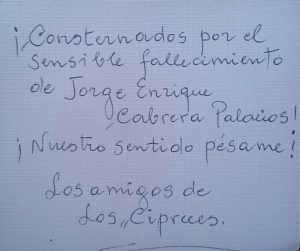 ¡Consternados por el
sensible fallecimiento
de Jorge Enrique
Cabrera Palacios!
¡Nuestro sentido pésame!
Los amigos de
Los „Cipreces.